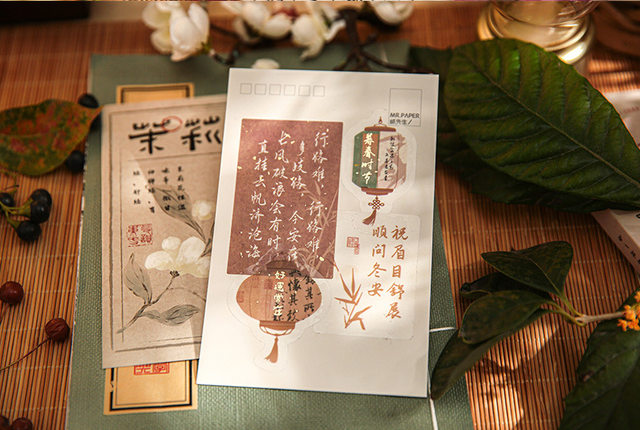 茉莉
MR.PAPER
纸先生/
行路难,行路难
多歧路,今安在
长风破浪会有时
直挂云帆济沧海
暮春时节
祝眉目舒展
顺问冬安